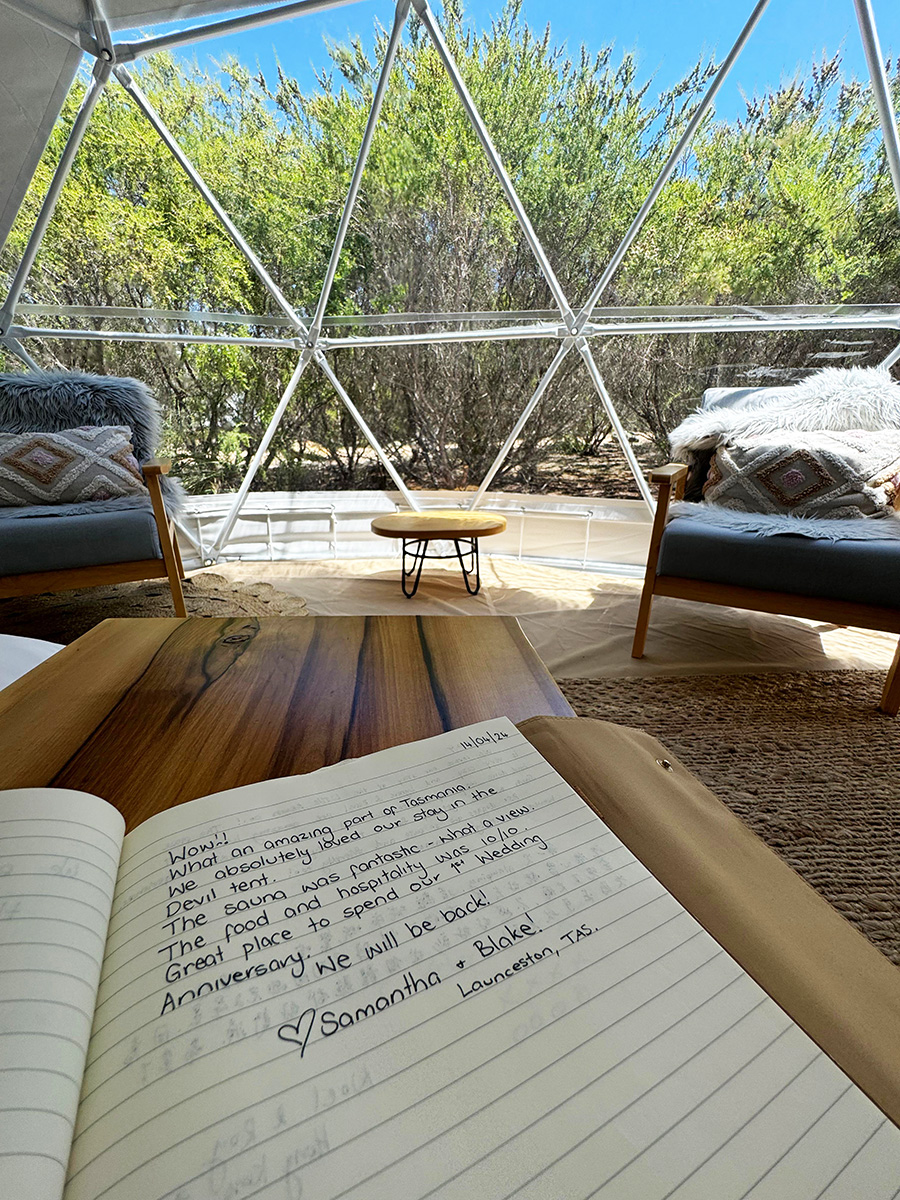 14/04/24
Wow!!
What an amazing part of Tasmania.
We absolutely loved our stay in the
Devil tent.
The sauna was fantastic - what a view.
The food and hospitality was 10/10.
Great place to spend our 1st Wedding
Anniversary. We will be back!
♡ Samantha + Blake!
Launceston, TAS.